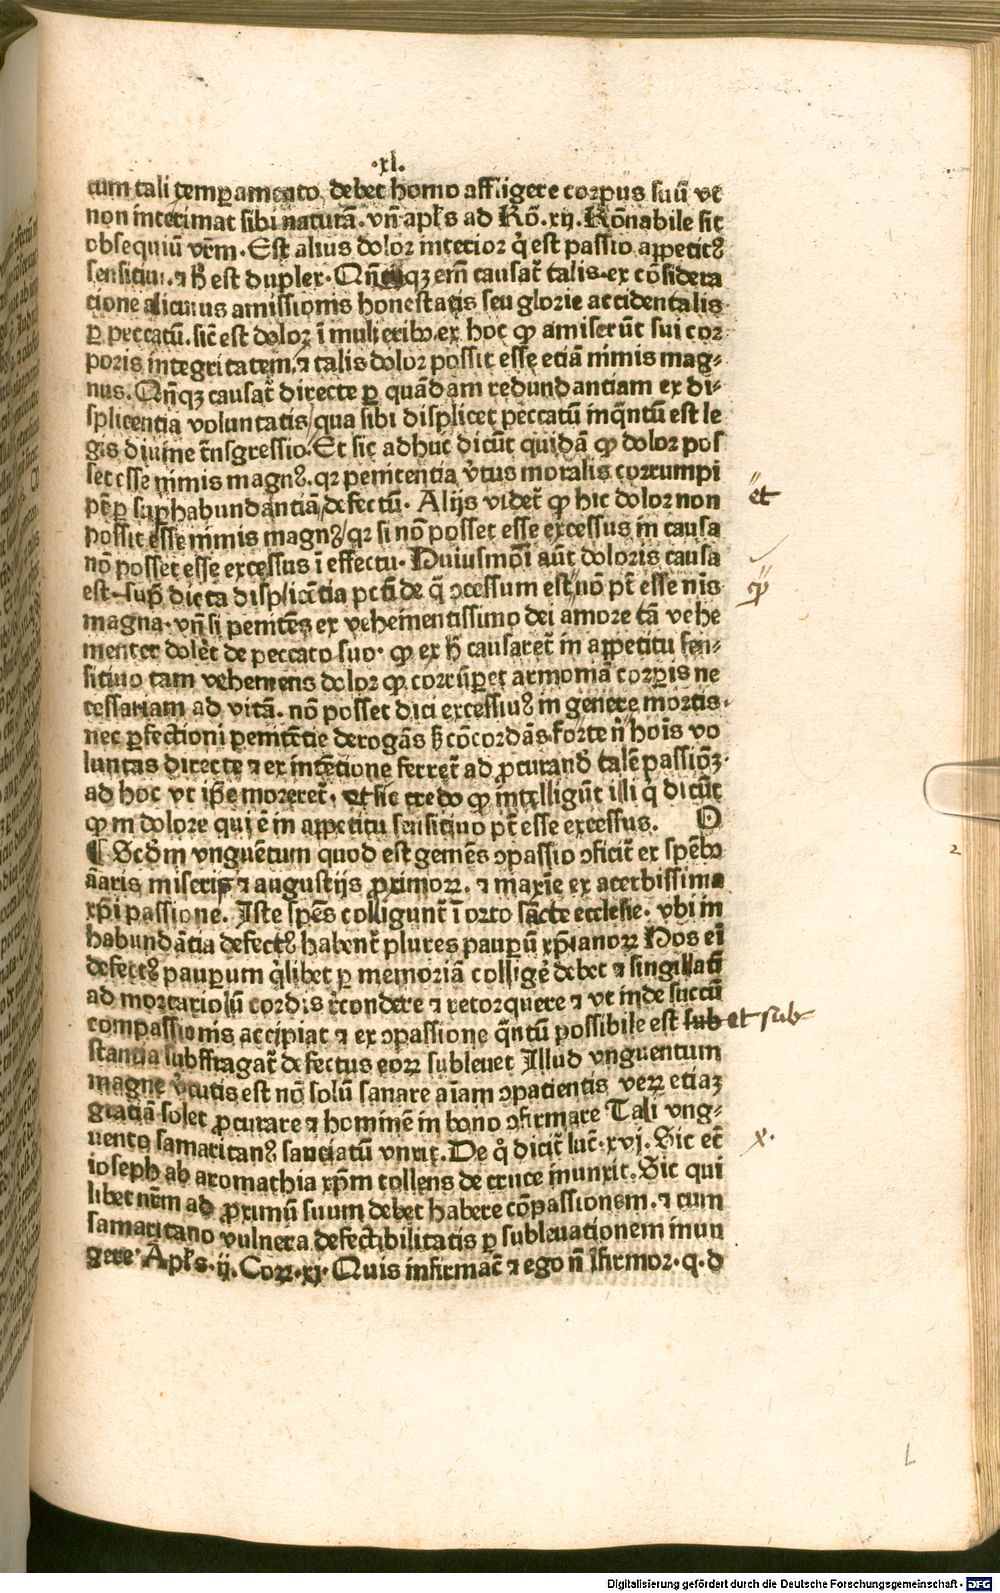 ·xl·
cum tali temꝑamento debet homo affligere corpus suū vt
non interimat sibi naturā. vñ apl̃s ad Rõ.xij. Rõnabile sit
obsequiū vr̃m. Est alius dolor interior q̇ est passio appetitꝰ
sensitiui. ⁊ h̃ est duplex. Qñ qꝫ em̄ causat̃ talis ex cõsidera
tione alicuius amissionis honestatis seu glorie accidentalis
ꝑ peccatū. sic̃ est dolor ī mulieribꝰ ex hoc ꝙ amiserūt sui cor
poris integritatem. ⁊ talis dolor possit esse etiā nimis mag⸗
nus. Qñqꝫ causat̃ directe ꝑ quādam redundantiam ex di⸗
splicentia voluntatis/ qua sibi displicet peccatū inq̃ntū est le
gis diuine t̃nsgressio. Et sic adhuc dicūt quidā ꝙ dolor pos
set esse nimis magnꝰ. qꝛ penitentia v̓tus moralis corrumpi
pt̄ ꝑ suꝑhabundantiā/ defectū. Alijs videt̃ ꝙ hic dolor non
et
possit esse nimis magnꝰ/ qꝛ si nõ posset esse excessus in causa
nõ posset esse excessus ī effectu. Huiusmõi aūt doloris causa
est supͣ dicta displicētia pctī de q̃ ɔcessum est nõ pt̄ esse nĩs
ꝙ
magna. vñ si penitēs ex vehementissimo dei amore tā vehe
menter dolet̃ de peccato suo. ꝙ ex h̃ causaret̃ in appetitu sen⸗
sitiuo tam vehemens dolor ꝙ corrūperet armoniā corꝑis ne
cessariam ad vitā. nõ posset dici excessiuꝰ in genere mortis.
nec ꝑfectioni penitētie derogās ß cõcordās forte ñ hoĩs vo
luntas directe ⁊ ex intētione ferret̃ ad ꝓcurand̃ talē passiõꝫ.
ad hoc vt ip̃e moreret̃. et sic credo ꝙ intelligūt illi q̇ dicūt
ꝙ in dolore qui ē in appetitu sensitiuo pt̄ esse excessus. O
¶ Scdm vnguētum quod est gemēs ɔpassio ɔficit̃ ex spēbꝰ
amaris miserijs ⁊ augustijs ꝓximoꝝ. ⁊ maxĩe ex acerbissima
xp̃i passione. Iste spēs colligunt̃ ī orto sācte ecclesie. vbi in
habundātia defectꝰ habent̃ plures pauꝑū xp̃ianoꝝ Hos eĩ
defectꝰ pauꝑum q̇libet ꝑ memoriā collige̓ debet ⁊ singillati
ad mortariolū cordis r̃condere ⁊ retorquere ⁊ vt inde succū
compassionis accipiat ⁊ ex ɔpassione q̃ntū possibile est sub
et sub
stantia subffragat̃ defectus eoꝝ subleuet Illud vnguentum
magne v̓tutis est nõ solū sanare aīam ɔpatientis veꝝ etiaꝫ
gratiā solet ꝓcurare ⁊ hominē in bono ɔfirmare Tali vng⸗
uento samaritanꝰ sauciatū vnxit. De q̊ dicit̃ luc̃.xvj. Sic et̄
x.
ioseph ab aromathia xp̃m tollens de cruce inunxit. Sic qui
libet nr̃m ad ꝓximū suum debet habere cõpassionem. ⁊ cum
samaritano vulnera defectibilitatis ꝑ subleuationem inun
gere. Apl̃s.ij.Coꝝ.xj. Quis infirmat̃ ⁊ ego ñ ĩfirmor. q.d
2
L
Digitalisierung gefördert durch die Deutsche Forschungsgemeinschaft - DFG